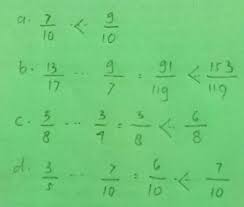 a. 7/10 < 9/10
b. 13/17 ... 9/7 = 91/119 < 153/119
c. 3/8 ... 3/4 = 3/8 < 6/8
d. 3/5 ... 7/10 = 6/10 < 7/10